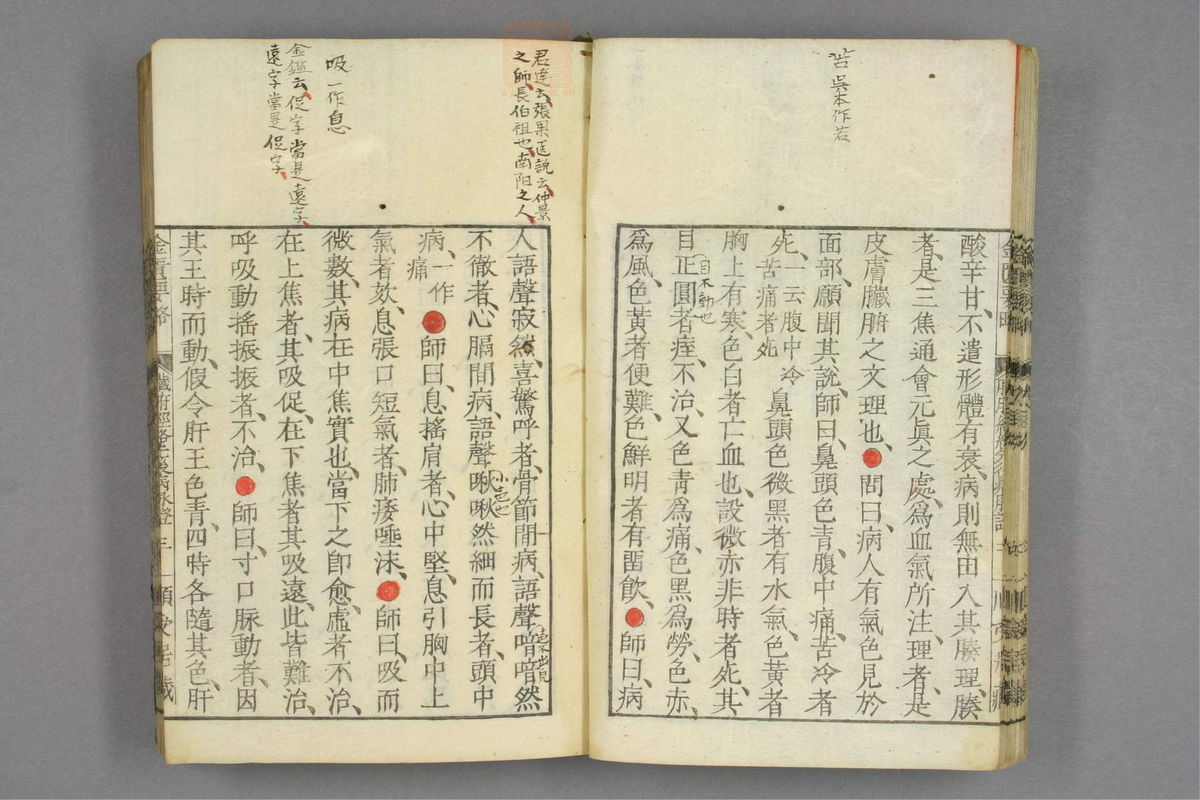 苦吳本作若
酸辛甘、不遺形體有衰、病則無由入其腠理、腠
者、是三焦通會元眞之處、爲血氣所注、理者、是
皮膚臟腑之文理也、問曰、病人有氣色見於
面部、願聞其說、師曰、鼻頭色青、腹中痛、苦冷者
死、一云腹中冷
苦痛者死
鼻頭色微黑者、有水氣、色黃者、
胸上有寒、色白者、亡血也、設微赤非時者、死、其
目正圓者、痓、不治、又色青爲痛、色黑爲勞、色赤、
目不動也
爲風、色黃者便難、色鮮明者有留飲、師曰、病
君達云、張杲医說云、仲景
之師、長伯祖也、南阳之人
吸一作息
金鑑云、促字當是遠字、
遠字當是促字、
人語聲寂然、喜驚呼者、骨節間病、語聲喑喑然
不徹者、心膈間病、語聲啾啾然細而長者、頭中
小声也
病、一作
痛
師曰、息搖肩者、心中堅、息引胸中上
氣者欬、息張口短氣者、肺痿唾沫、師曰、吸而
微數、其病在中焦實也、當下之即愈、虛者不治、
在上焦者、其吸促、在下焦者、其吸遠、此皆難治、
呼吸動搖振振者、不治、師曰、寸口脉動者、因
其王時而動、假令肝王色青、四時各隨其色、肝
金匱要略
臟腑經絡先後病脉證
三